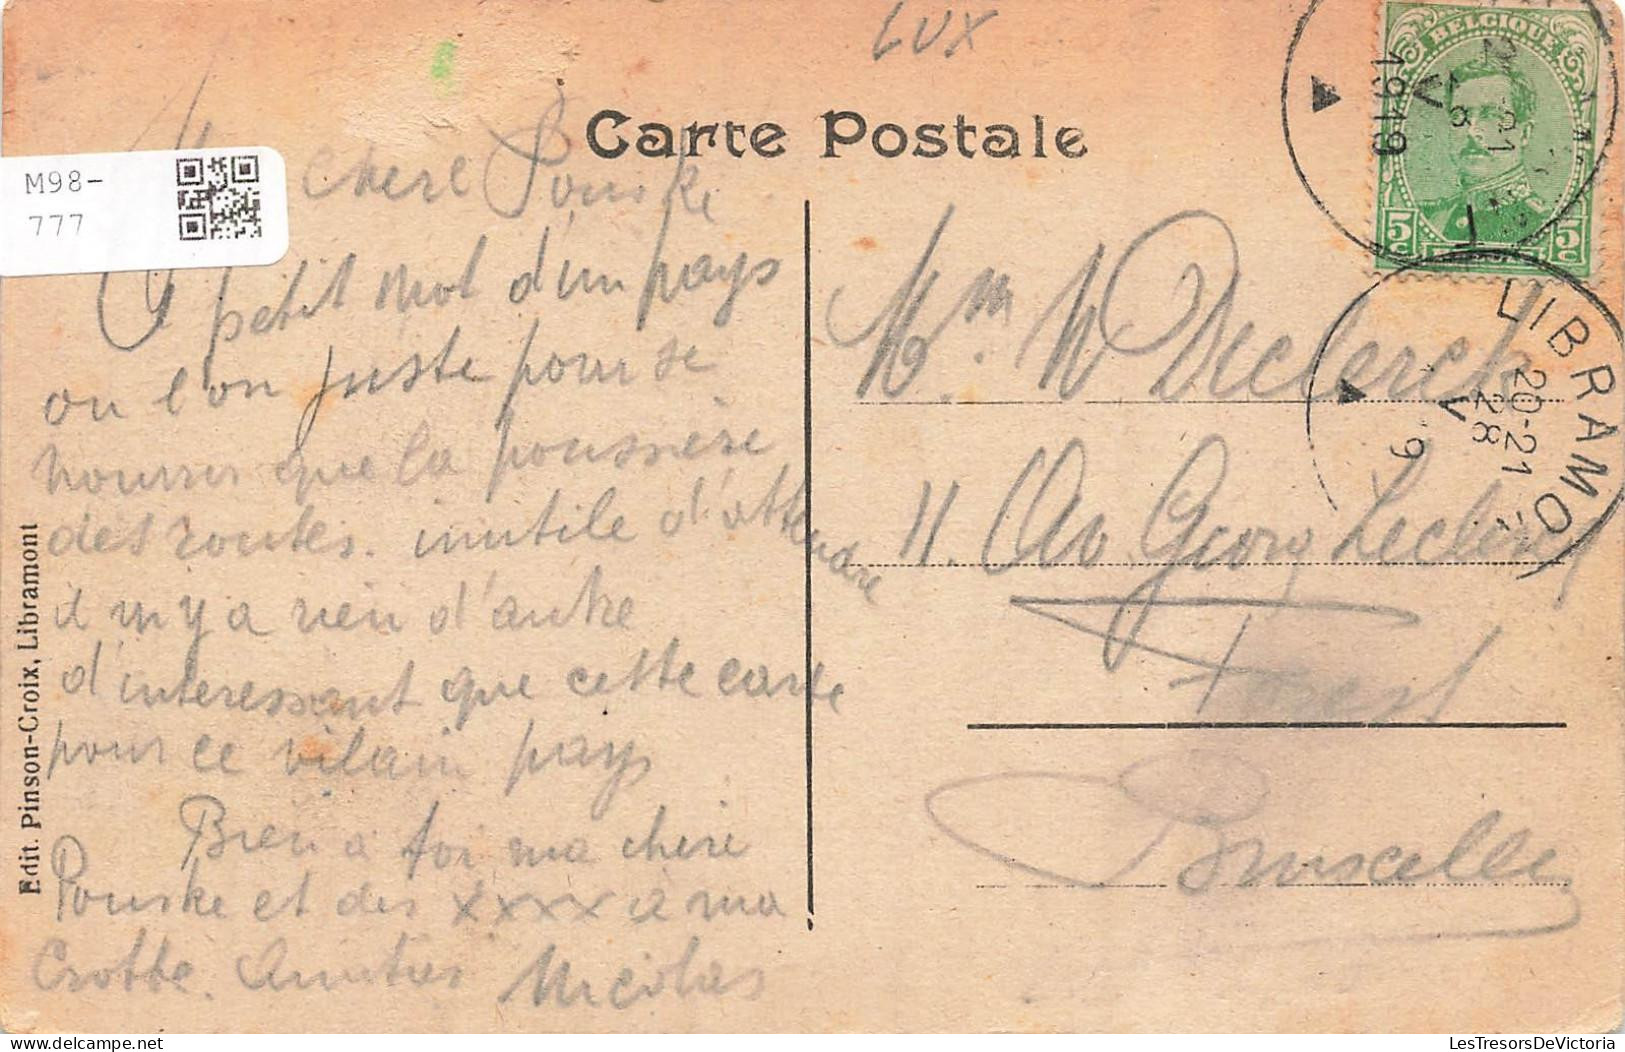 LUX
Carte Postale
M98-
777
BELGIQUE
5c 5c
1919
LIBRAMO
20-21
28
V
9
chere Pouske
petit mot d'un pays
ou l'on juste pour se
nourrir que la poussière
des routes. inutile d'attendre
il n'y a rien d'autre
d'interessant que cette carte
pour ce vilain pays
Bien a toi ma chere
Pouske et des xxxx a ma
Crotte. Amities Nicolas
Mm W Declerck
11. Av Georg Leclerc
Forest
Bruxelles
Edit. Pinson-Croix, Libramont
LesTresorsDeVictoria